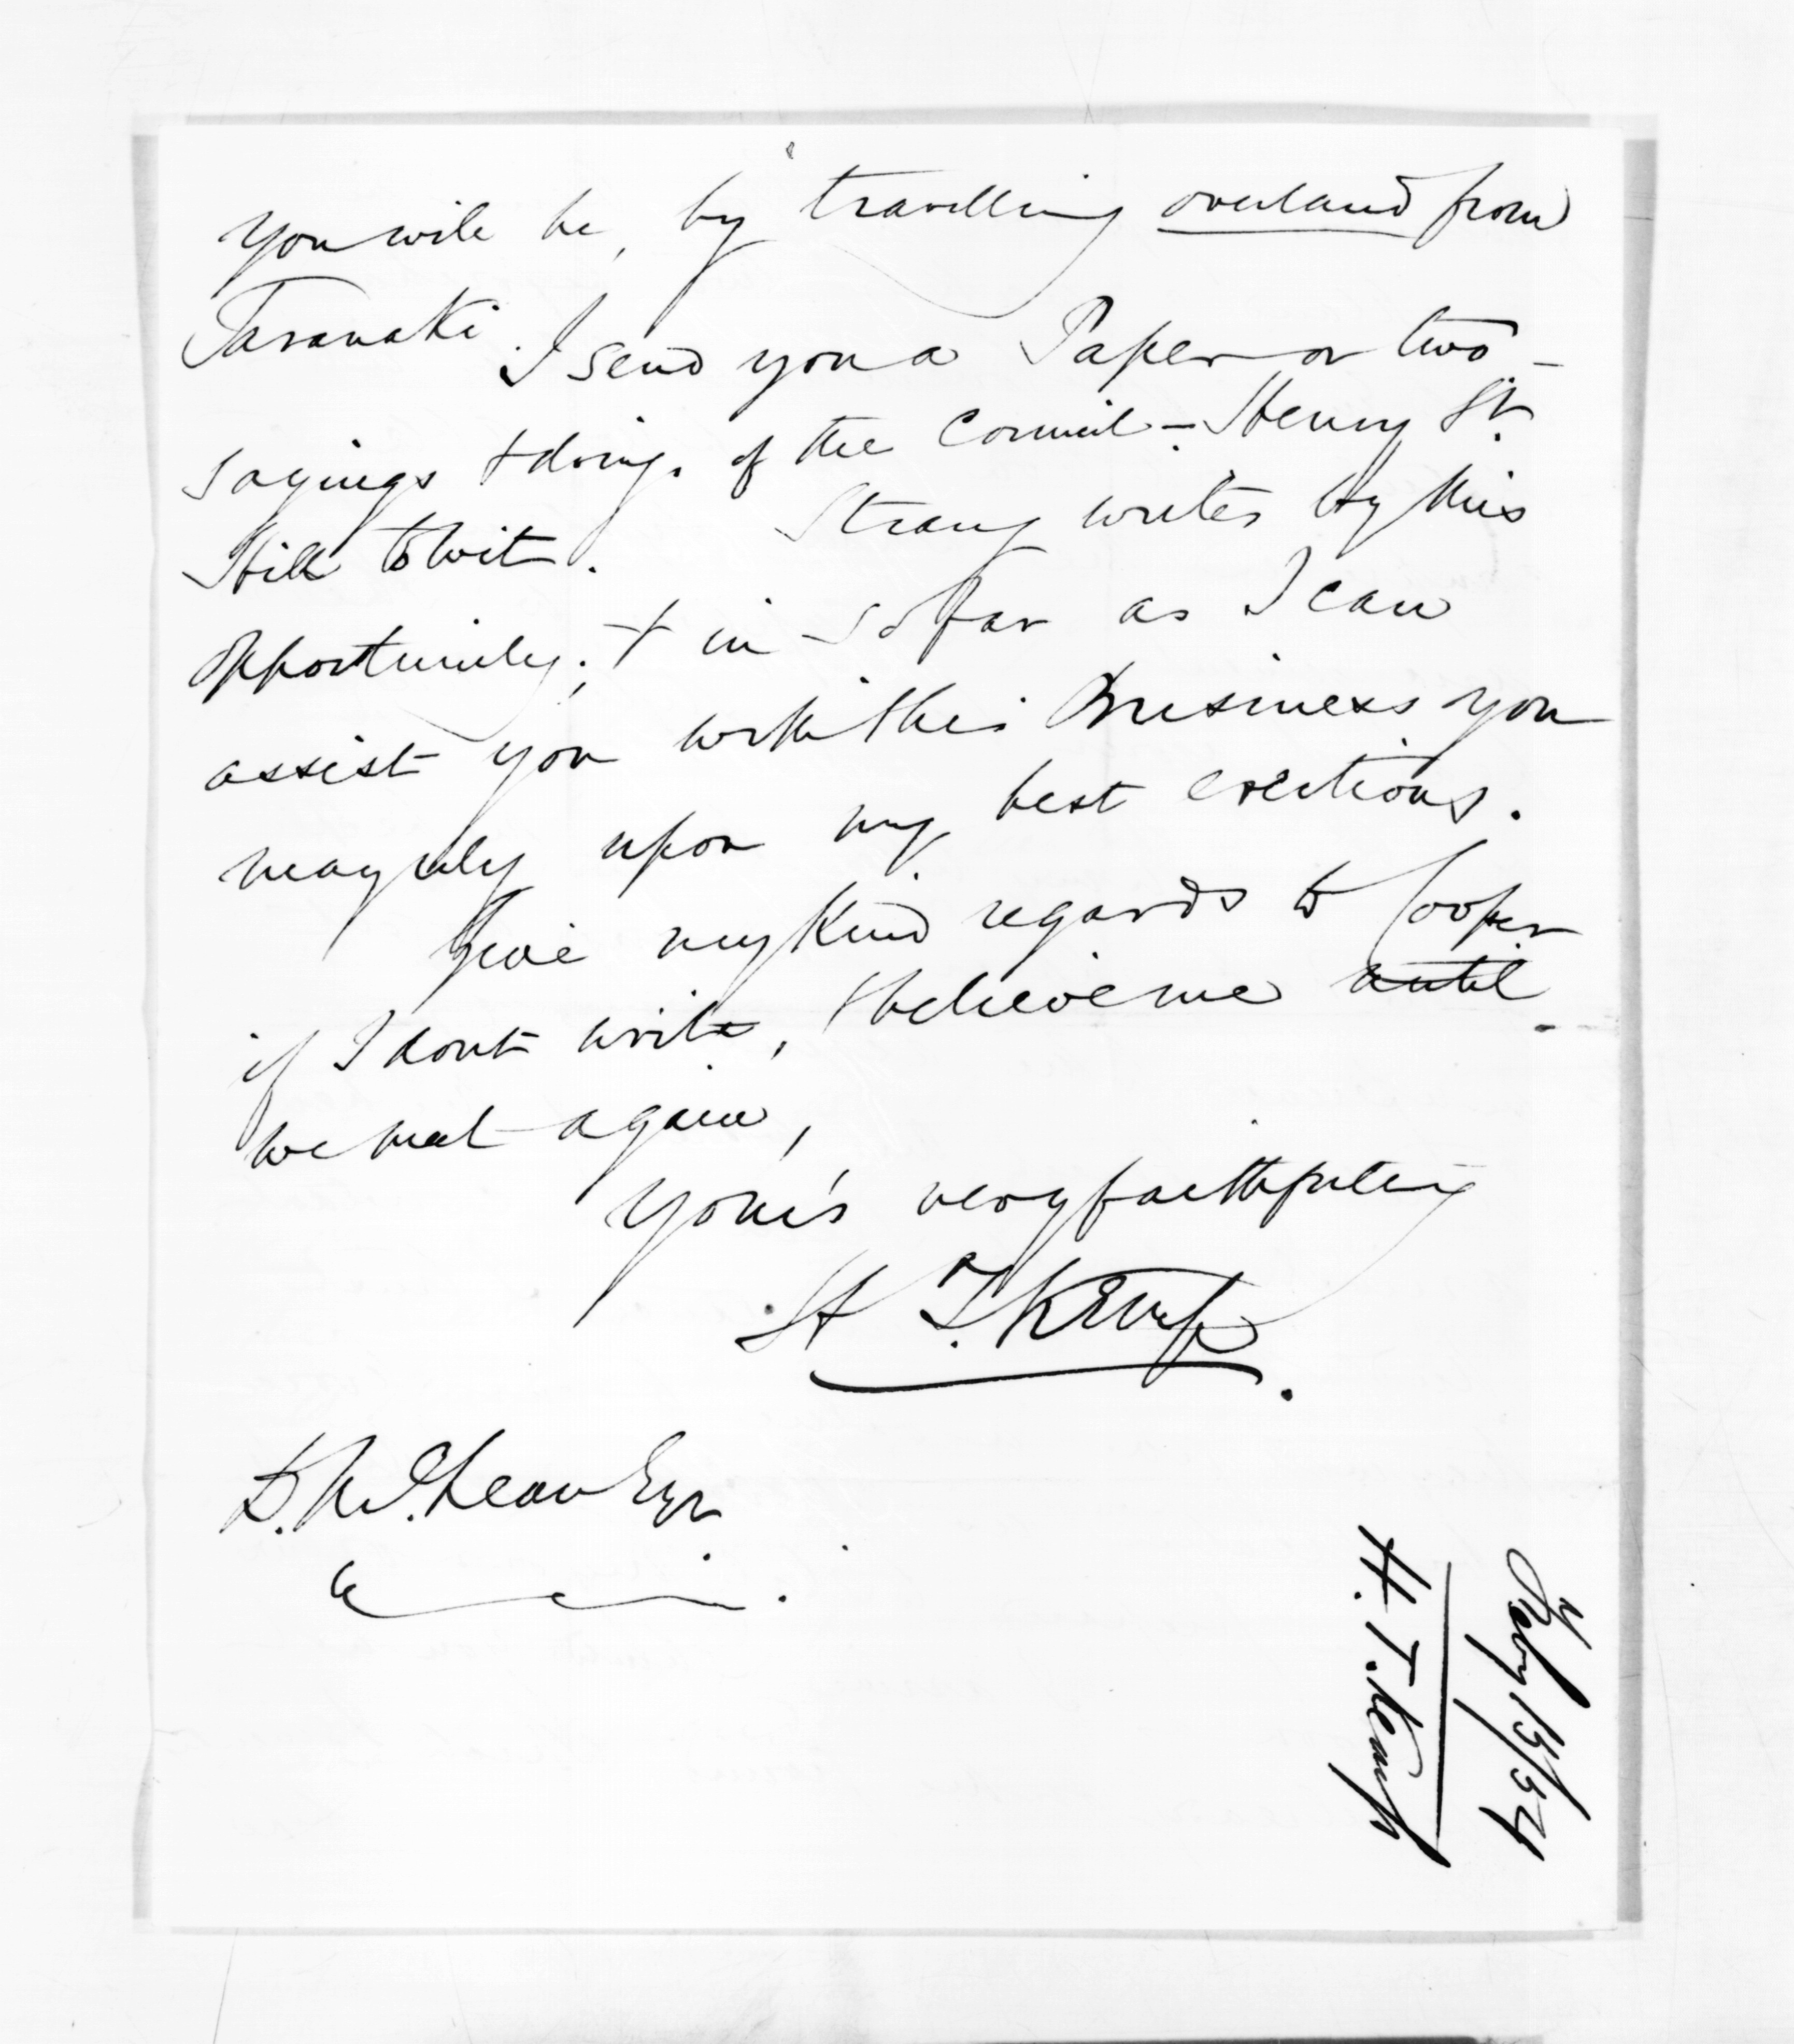 you will be, by travelling overland from
Taranaki. I send you a Paper or two –
sayings & doings of the Council – Henry St.
Hill to wit. Strang writes by this
opportunity; & in so far as I can
assist you with this Business you
may rely upon my best exertions.
Give my kind regards to Cooper
if I dont write, & believe me until
we meet again,
Your's very faithfully
H T. Kemp.
D. McLean Esqr
H. T. Kemp
Feby 15/54